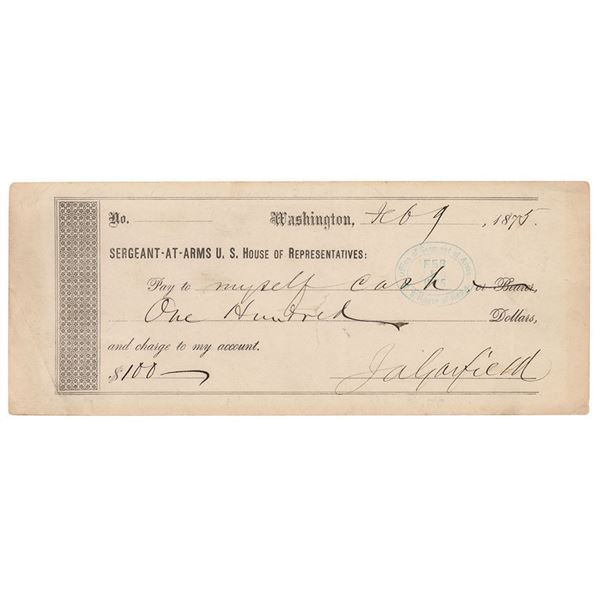 No. Washington, Feb 9, 1875.
SERGEANT-AT-ARMS U. S. HOUSE OF REPRESENTATIVES:
Pay to myself cash or Bearer,
One Hundred Dollars,
and charge to my account.
$100 JAGarfield
FEB